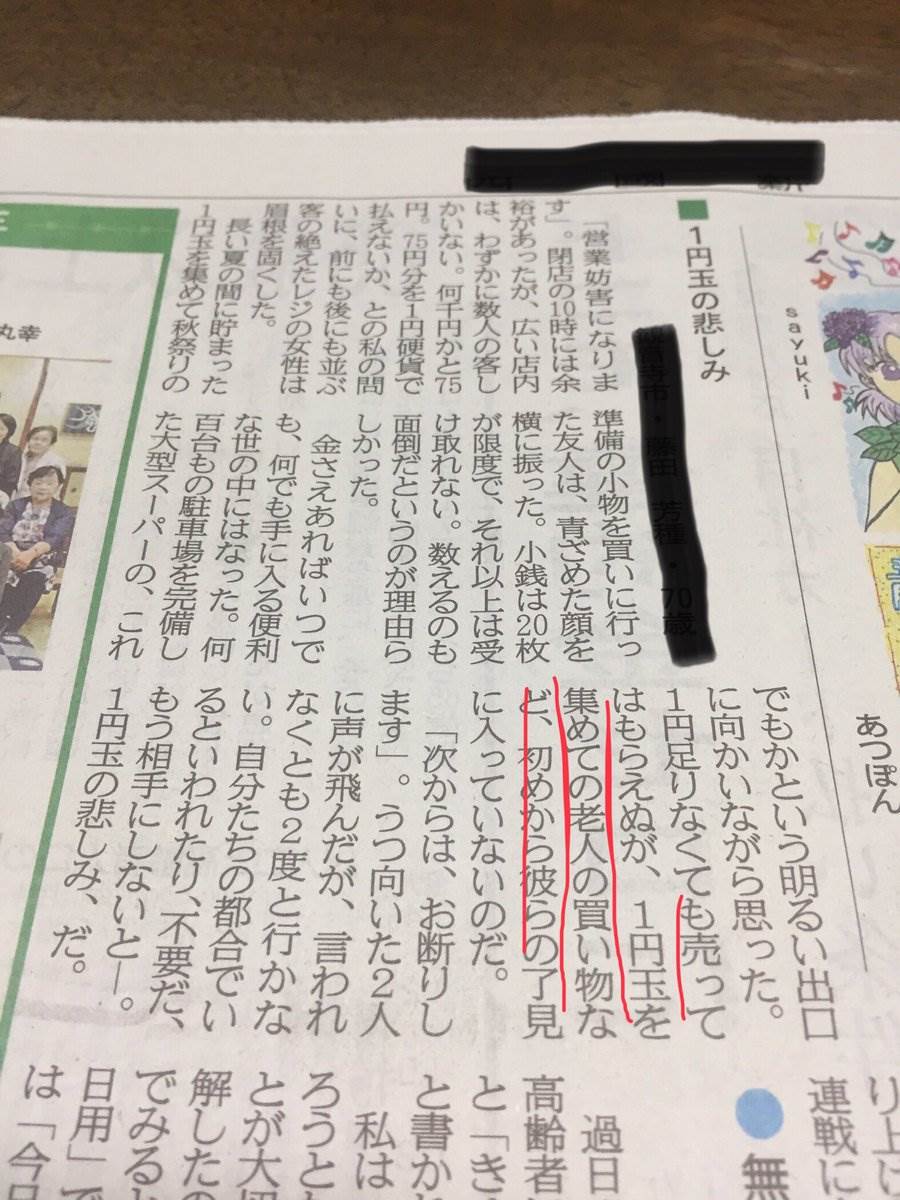 sayuki
あつぽん
■1円玉の悲しみ
「営業妨害になりま
す」。閉店の10時には余
裕があったが、広い店内
は、わずかに数人の客し
かいない。何千円かと75
円。75円分を1円硬貨で
払えないか、との私の問
いに、前にも後にも並ぶ
客の絶えたレジの女性は
眉根を固くした。
長い夏の間に貯まった
1円玉を集めて秋祭りの
準備の小物を買いに行っ
た友人は、青ざめた顔を
横に振った。小銭は20枚
が限度で、それ以上は受
け取れない。数えるのも
面倒だというのが理由ら
しかった。
金さえあればいつで
も、何でも手に入る便利
な世の中にはなった。何
百台もの駐車場を完備し
た大型スーパーの、これ
でもかという明るい出口
に向かいながら思った。
1円足りなくても売って
はもらえぬが、1円玉を
集めての老人の買い物な
ど、初めから彼らの了見
に入っていないのだ。
「次からは、お断りし
ます」。うつ向いた2人
に声が飛んだが、言われ
なくとも2度と行かな
い。自分たちの都合でい
るといわれたり、不要だ、
もう相手にしないと―。
1円玉の悲しみ、だ。
丸幸
連戦に
●無
過日
高齢者
と「き
と書か
私は
ろうと
とが大切
解したの
でみると
日用」で
は「今日